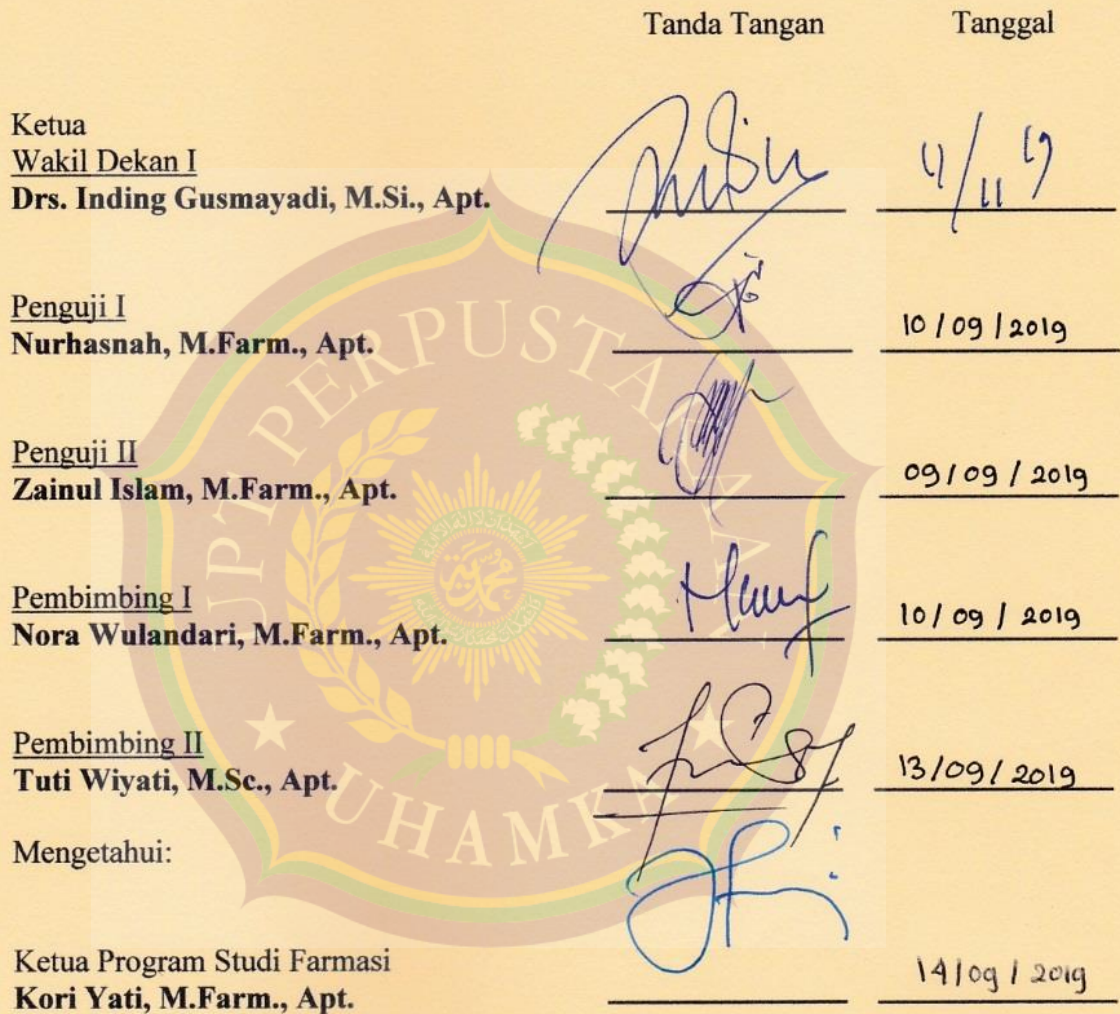 Tanda Tangan Tanggal
Ketua
Wakil Dekan I
Drs. Inding Gusmayadi, M.Si., Apt.
Penguji I
Nurhasnah, M.Farm., Apt. 10/09/2019
Penguji II
Zainul Islam, M.Farm., Apt. 09/09/2019
Pembimbing I
Nora Wulandari, M.Farm., Apt. 10/09/2019
Pembimbing II
Tuti Wiyati, M.Sc., Apt. 13/09/2019
Mengetahui:
Ketua Program Studi Farmasi
Kori Yati, M.Farm., Apt. 14/09/2019
UPT PERPUSTAKAAN
UHAMKA